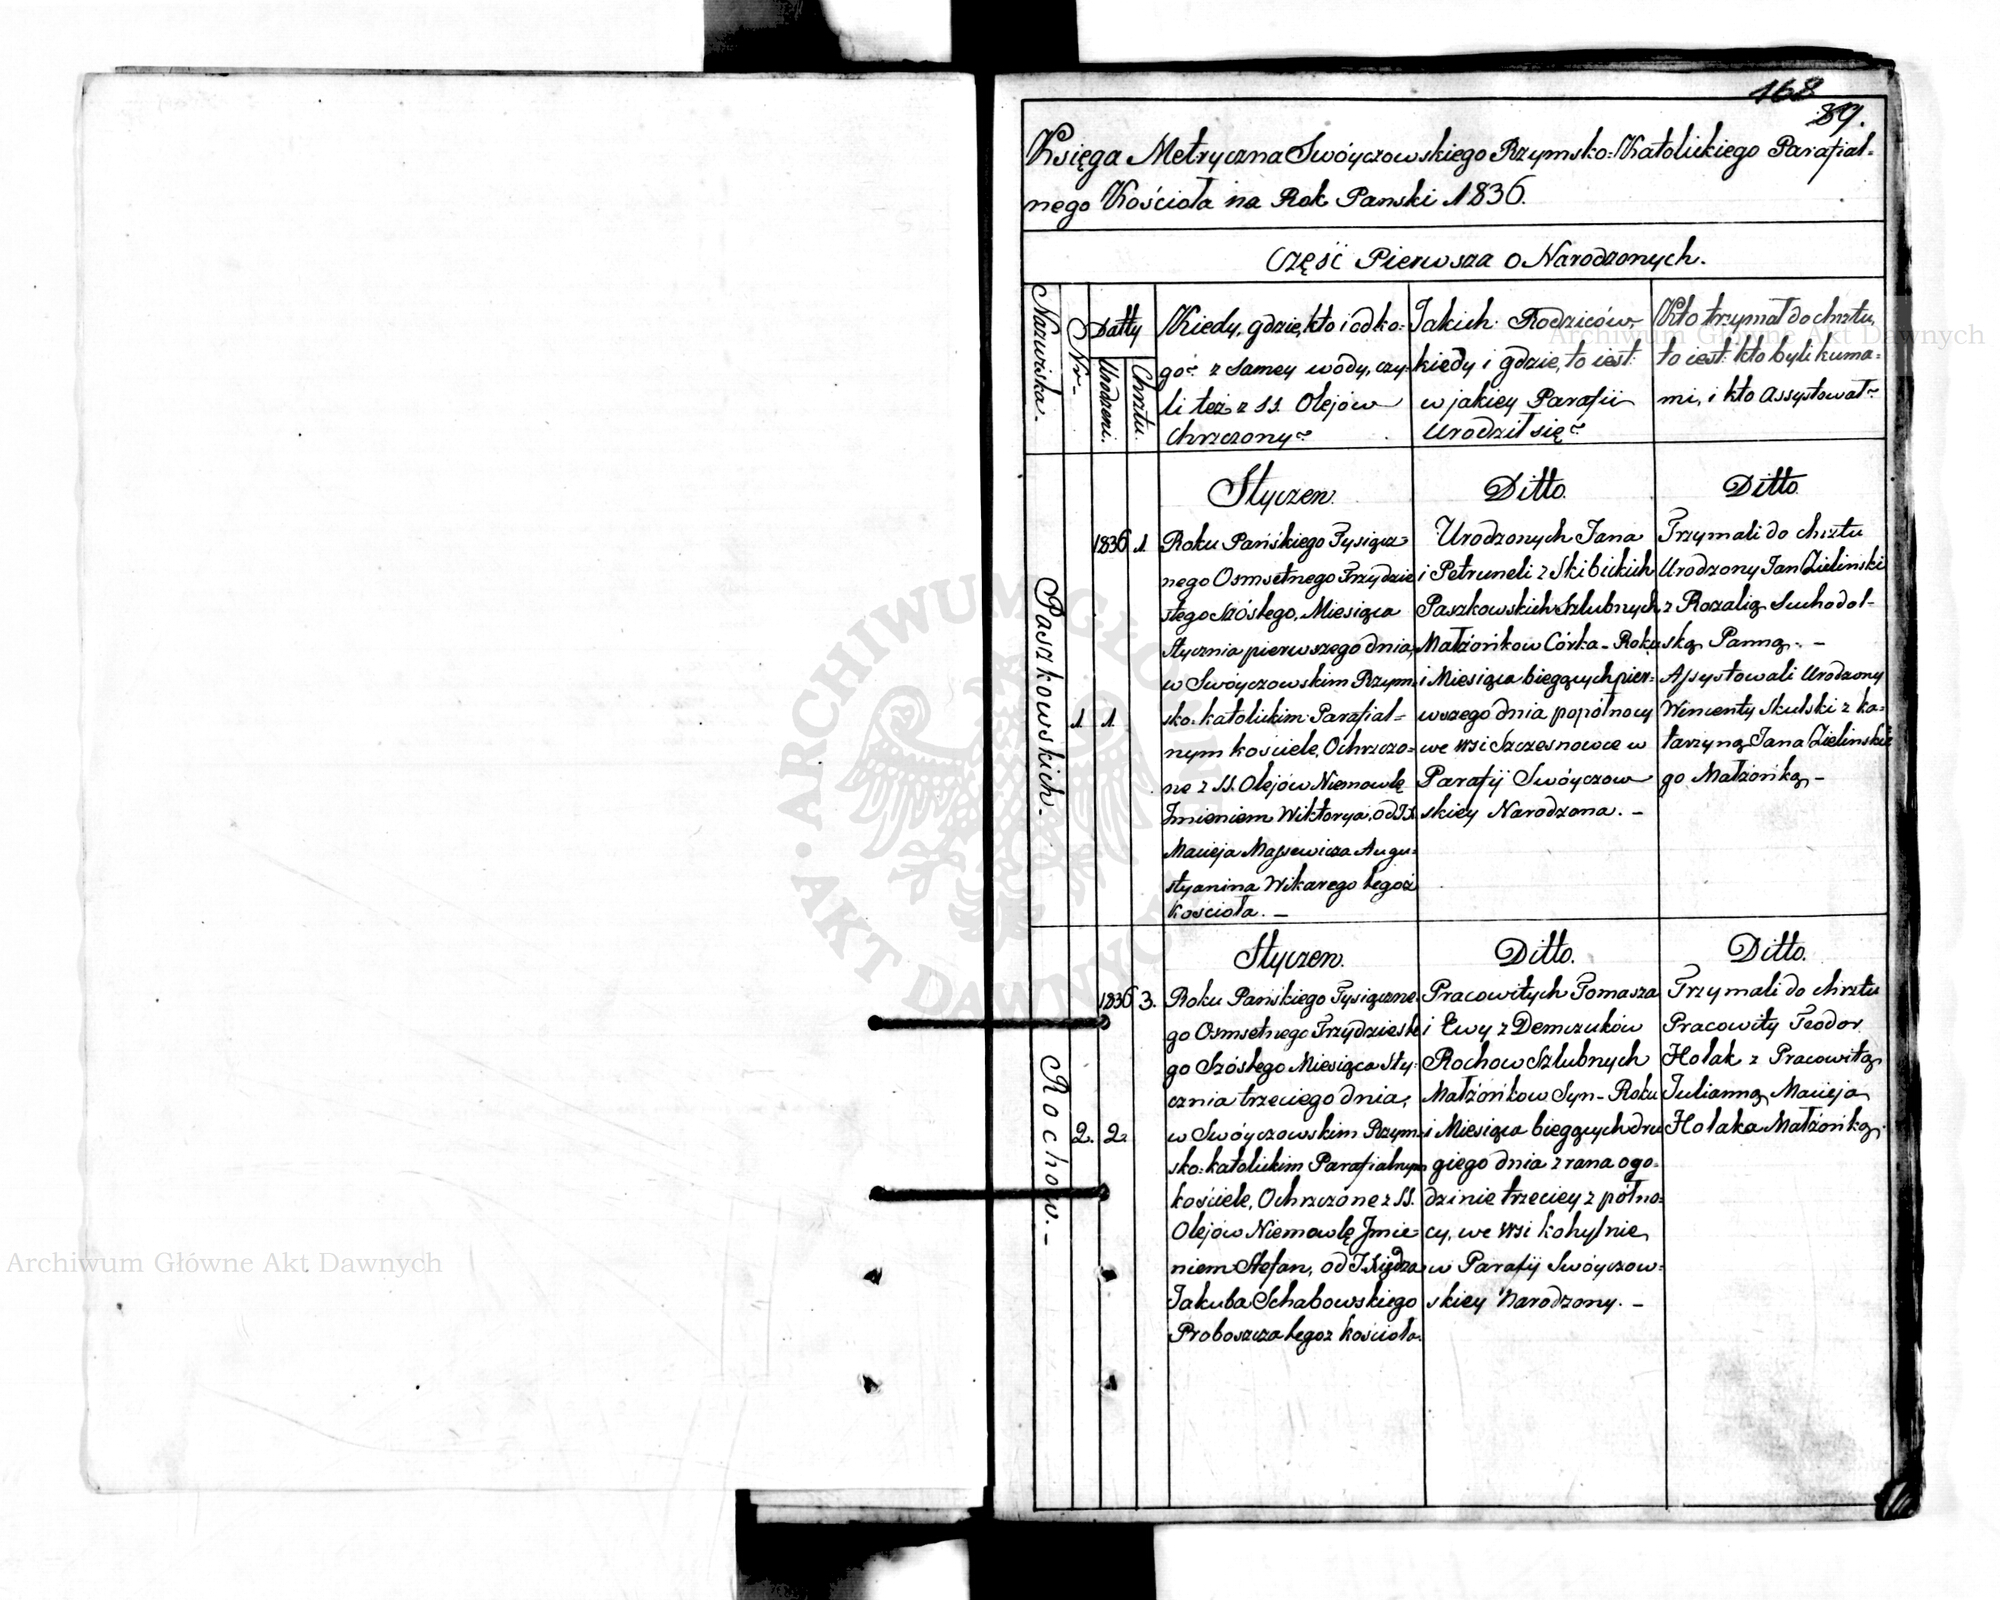 168
89.
Księga Metryczna Swóyczowskiego Rzymsko=Katolickiego Parafial=
nego Kościoła na Rok Panski 1836.
Część Pierwsza o Narodzonych.
Nazwiska.
Nr
Datty
Urodzeni.
Chrztu.
Kiedy, gdzie, kto i od ko=
goż z samey wody, czy=
li też z SS. Olejów
Chrzczony
Jakich Rodziców,
kiedy i gdzie, to iest:
w jakiey Parafii
Urodził się
Kto trzymał do chrztu,
to iest: kto byli kuma=
mi, i kto Assystował
Paszkowskich.
1
1836
1
1.
Styczen.
Roku Pańskiego Tysiącz=
nego Osmsetnego Trzydzie
stego Szóstego, Miesiąca
Stycznia pierwszego dnia,
w Swóyczowskim Rzym=
sko=katolickim Parafial=
nym kościele, Ochrzczo=
ne z SS. Olejów Niemowlę
Jmieniem Wiktorya, od J.X
Macieja Majsewicza Augu=
styanina Wikarego tegoż
Kościoła. –
Ditto.
Urodzonych Jana
i Petruneli z Skibickich
Paszkowskich Szlubnych
Małżonkow Córka – Roku
i Miesiąca bieggcych pier=
wszego dnia popołnocy
we Wsi Szczesnowce w
Parafij Swóyczow
skiey Narodzona. –
Ditto.
Trzymali do chrztu
Urodzony Jan Zielinski
z Rozalią Suchodol=
ską Panną. –
Assystowali Urodzony
Wincenty Skulski z Ka=
tarzyną Jana Zielinskie
go Małżonką –
Rochow. –
2.
1836
2
3.
Styczen.
Roku Pańskiego Tysiączne
go Osmsetnego Trzydzieste
go Szóstego Miesiąca Sty=
cznia trzeciego dnia,
w Swóyczowskim Rzym=
sko=katolickim Parafialnym
kościele, Ochrzczone z SS.
Olejów Niemowlę Jmie=
niem Stefan, od J. Xiędza
Jakuba Schabowskiego
Proboszcza tegoż kościoła.
Ditto.
Pracowitych Tomasza
i Ewy z Demczuków
Rochow Szlubnych
Małżonkow Syn – Roku
i Miesiąca bieggcych dru
giego dnia z rana o go=
dzinie trzeciey z półno=
cy, we Wsi Kohylnie
w Parafij Swóyczow=
skiey Narodzony. –
Ditto.
Trzymali do chrztu
Pracowity Teodor
Holak z Pracowitą
Julianną Macieja
Holaka Małżonką.
Archiwum Główne Akt Dawnych
Archiwum Główne Akt Dawnych
ARCHIWUM GŁÓWNE · AKT DAWNYCH ·